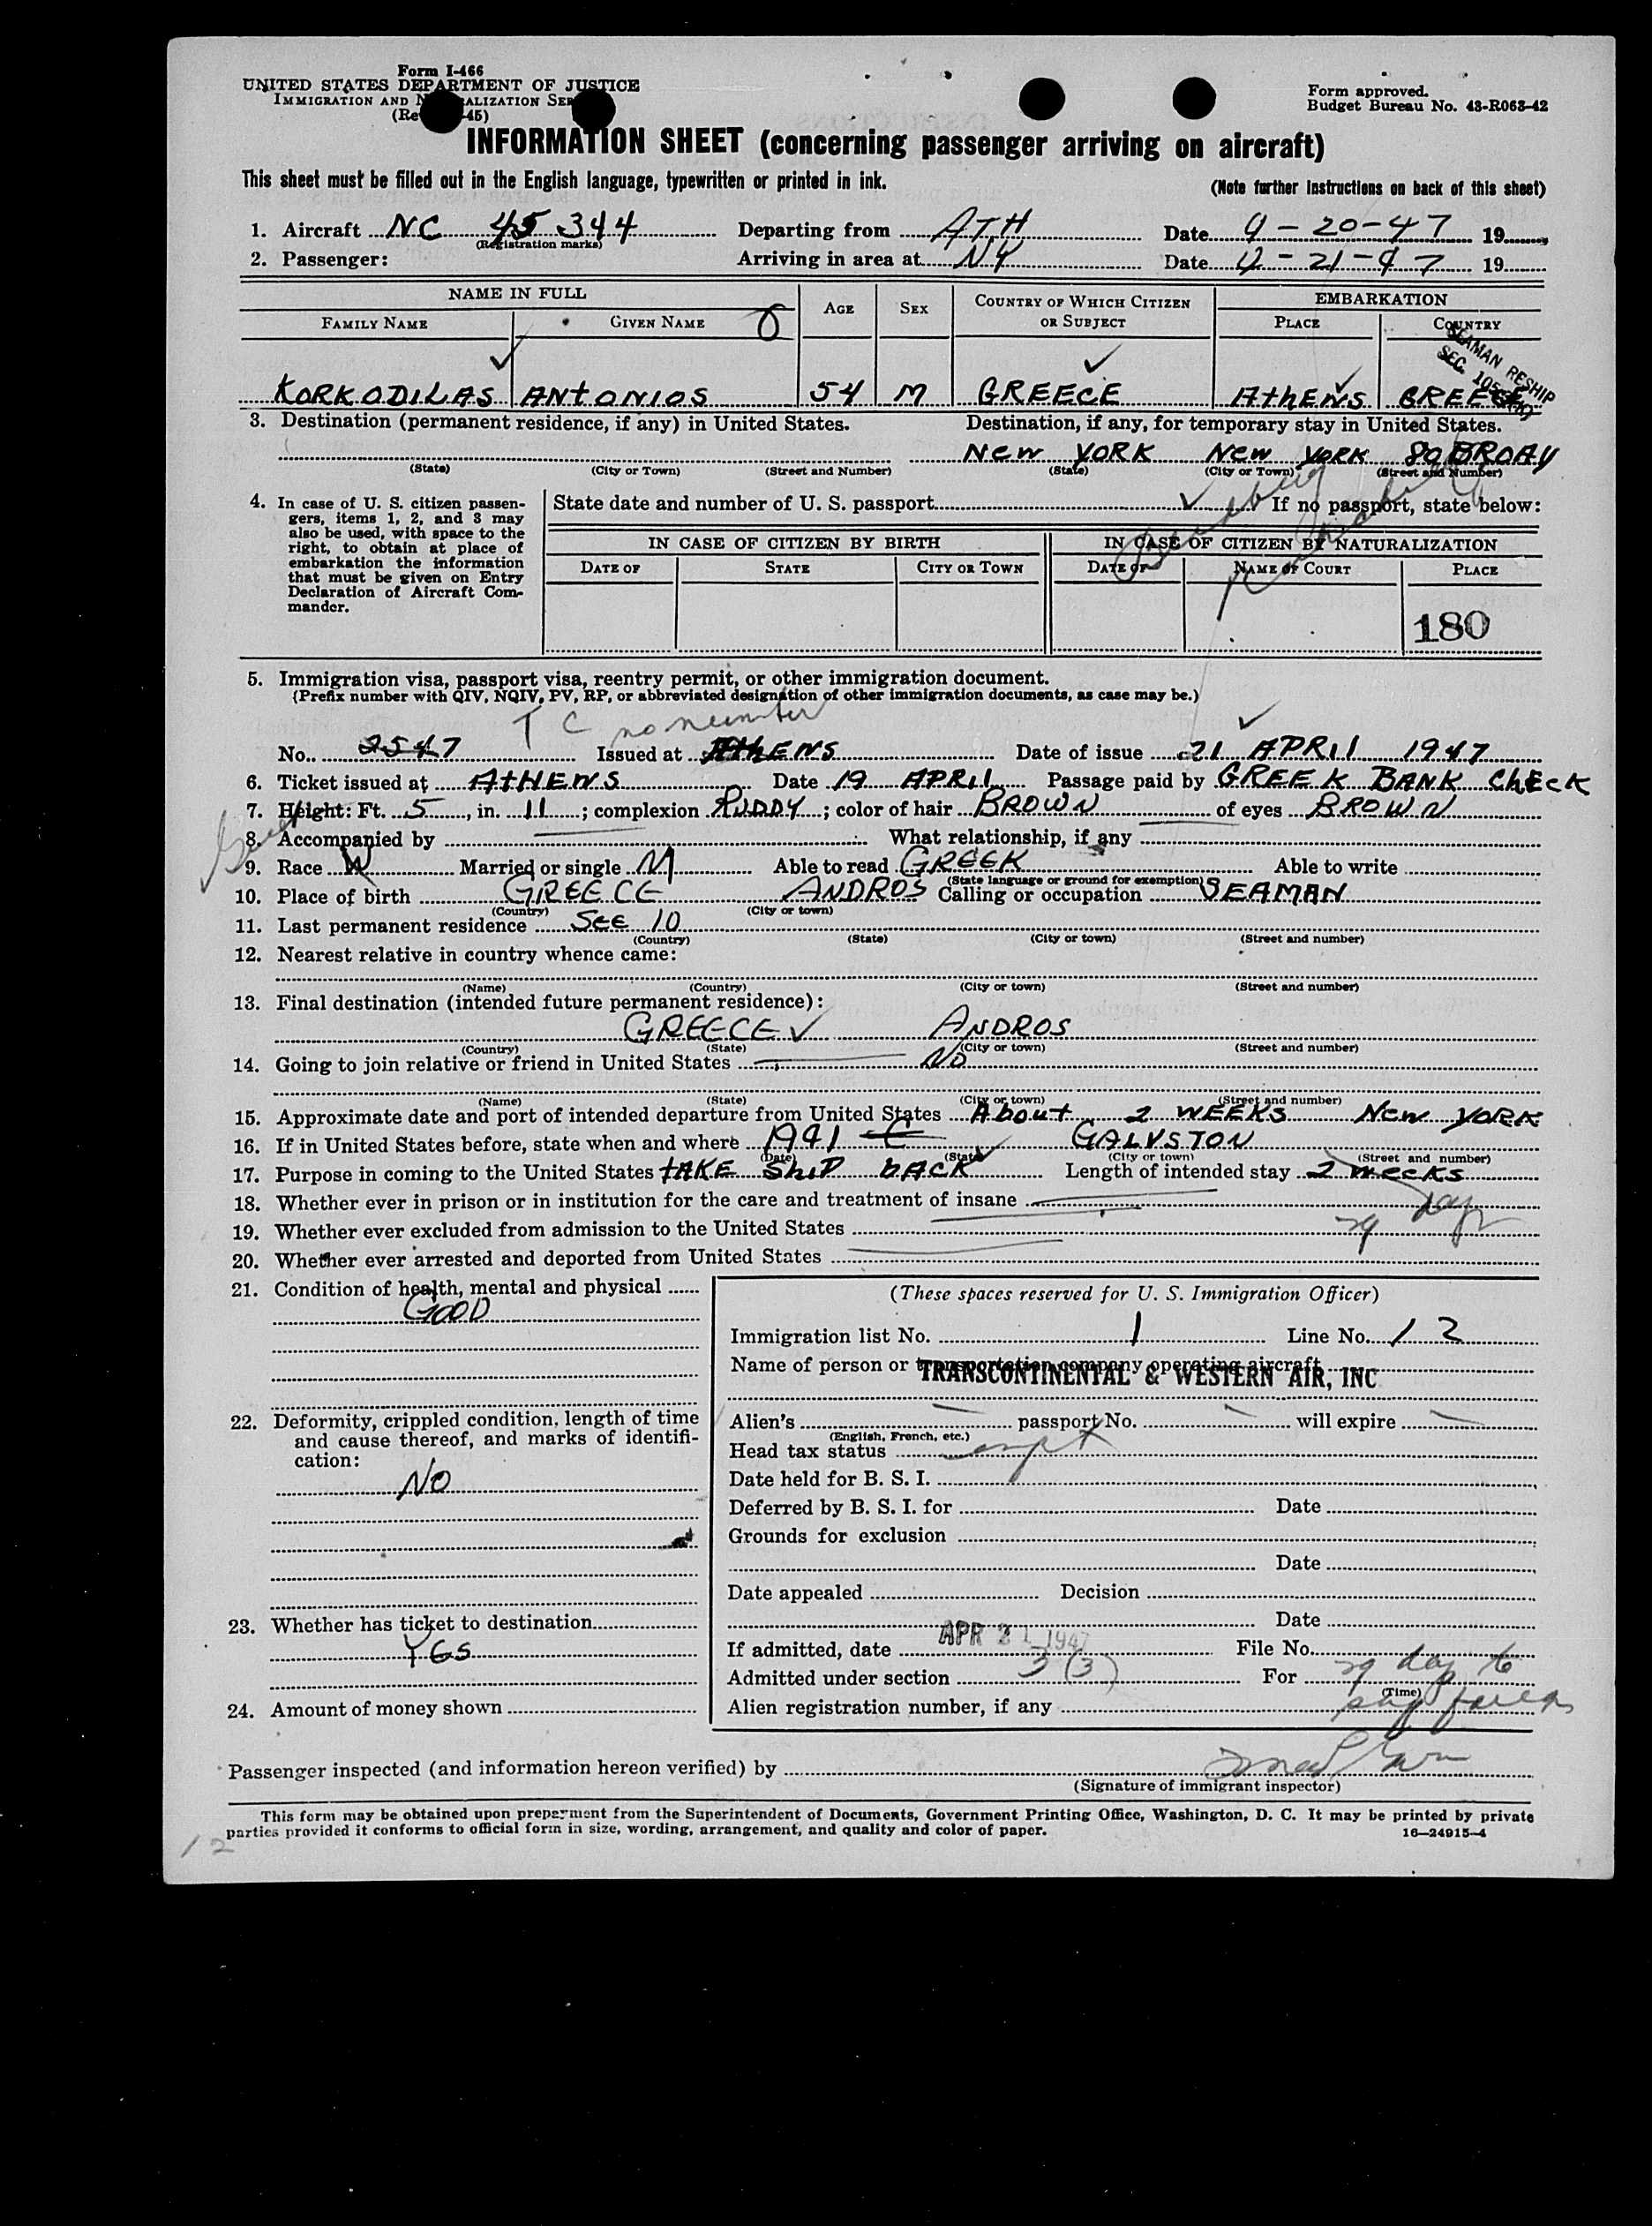 Form I-466
UNITED STATES DEPARTMENT OF JUSTICE
IMMIGRATION AND NATURALIZATION SER
(Re 45)
Form approved.
Budget Bureau No. 43-R063-42
INFORMATION SHEET (concerning passenger arriving on aircraft)
This sheet must be filled out in the English language, typewritten or printed in ink.
(Note further instructions on back of this sheet)
1. Aircraft NC 45344 Departing from ATH Date 4-20-47 19
(Registration marks)
2. Passenger: Arriving in area at NY Date 4-21-47 19
NAME IN FULL AGE SEX COUNTRY OF WHICH CITIZEN OR SUBJECT EMBARKATION
FAMILY NAME GIVEN NAME PLACE COUNTRY
SEAMAN RESHIP
SEC. 105
KORKODILAS ANTONIOS 54 M GREECE AthENS GREECE
3. Destination (permanent residence, if any) in United States. Destination, if any, for temporary stay in United States.
New YORK New YORK 80 BROAY
(State) (City or Town) (Street and Number) (State) (City or Town) (Street and Number)
4. In case of U. S. citizen passengers, items 1, 2, and 3 may also be used, with space to the right, to obtain at place of embarkation the information that must be given on Entry Declaration of Aircraft Commander.
State date and number of U. S. passport If no passport, state below:
IN CASE OF CITIZEN BY BIRTH IN CASE OF CITIZEN BY NATURALIZATION
DATE OF STATE CITY OR TOWN DATE OF NAME OF COURT PLACE
180
5. Immigration visa, passport visa, reentry permit, or other immigration document.
(Prefix number with QIV, NQIV, PV, RP, or abbreviated designation of other immigration documents, as case may be.)
T C no number
No. 2547 Issued at AthENS Date of issue 21 APRIL 1947
6. Ticket issued at ATHENS Date 19 APRIL Passage paid by GREEK BANK ChECK
7. Height: Ft. 5, in. 11; complexion RUDDY; color of hair BROWN of eyes BROWN
8. Accompanied by What relationship, if any
9. Race W Married or single M Able to read GREEK Able to write
(State language or ground for exemption)
10. Place of birth GREECE ANDROS Calling or occupation SEAMAN
(Country) (City or town)
11. Last permanent residence SEE 10
(Country) (State) (City or town) (Street and number)
12. Nearest relative in country whence came:
(Name) (Country) (City or town) (Street and number)
13. Final destination (intended future permanent residence):
GREECE ANDROS
(Country) (State) (City or town) (Street and number)
14. Going to join relative or friend in United States NO
(Name) (State) (City or town) (Street and number)
15. Approximate date and port of intended departure from United States About 2 WEEKS New YORK
16. If in United States before, state when and where 1941 GALVSTON
(Date) (State) (City or town) (Street and number)
17. Purpose in coming to the United States tAKE ShiP bACK Length of intended stay 2 weeks
18. Whether ever in prison or in institution for the care and treatment of insane
29 days
19. Whether ever excluded from admission to the United States
20. Whether ever arrested and deported from United States
21. Condition of health, mental and physical
GOOD
22. Deformity, crippled condition, length of time and cause thereof, and marks of identification:
NO
23. Whether has ticket to destination
YES
24. Amount of money shown
(These spaces reserved for U. S. Immigration Officer)
Immigration list No. 1 Line No. 12
Name of person or transportation company operating aircraft
TRANSCONTINENTAL & WESTERN AIR, INC
Alien's passport No. will expire
(English, French, etc.)
Head tax status
Date held for B. S. I.
Deferred by B. S. I. for Date
Grounds for exclusion
Date
Date appealed Decision
Date
If admitted, date APR 21 1947 File No.
Admitted under section 3(3) For 29 days to
(Time)
Alien registration number, if any
Passenger inspected (and information hereon verified) by
(Signature of immigrant inspector)
This form may be obtained upon prepayment from the Superintendent of Documents, Government Printing Office, Washington, D. C. It may be printed by private
parties provided it conforms to official form in size, wording, arrangement, and quality and color of paper.
16—24915-4
12